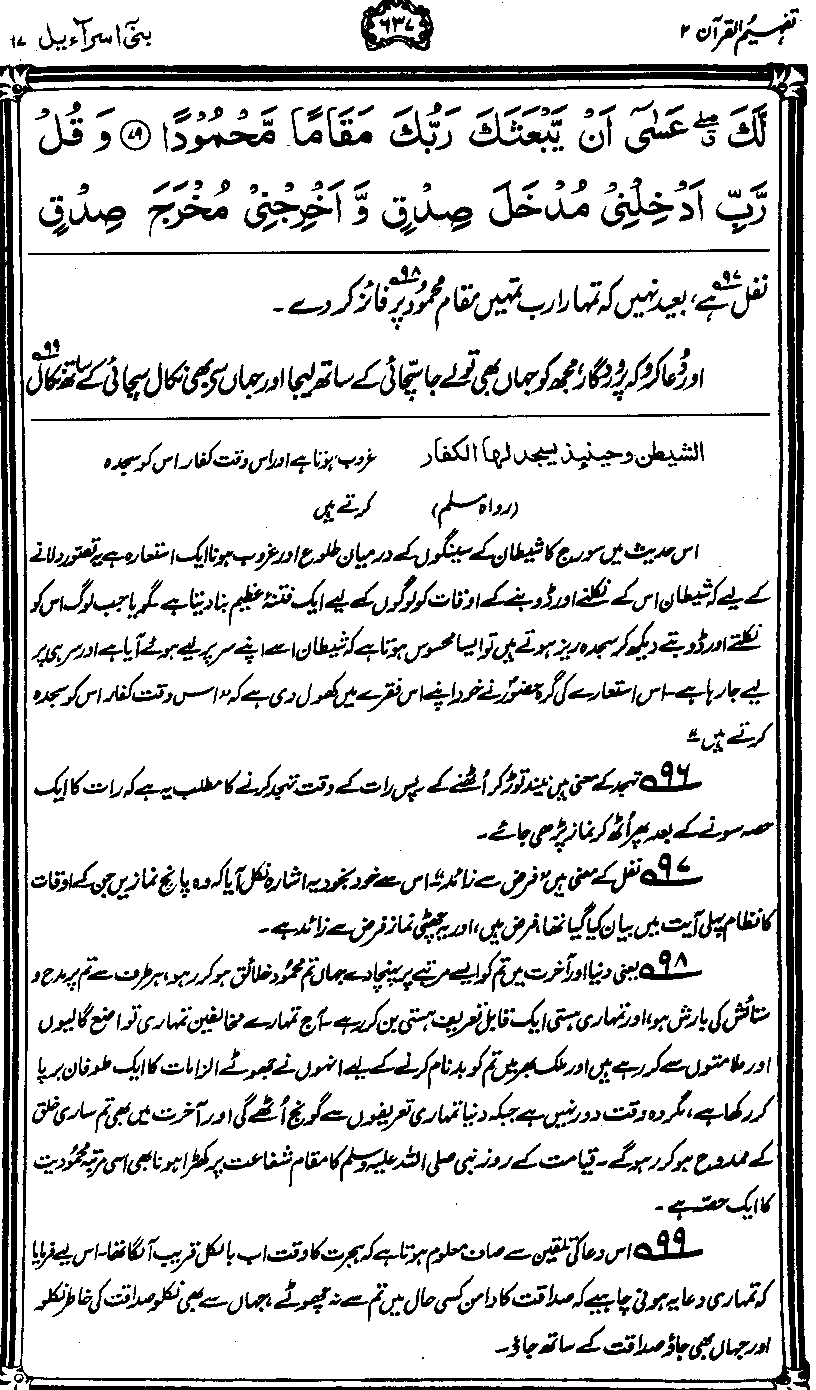 تفہیم القرآن ۲
۶۳۷
بنی اسرآءیل ۱۷
لَّكَ ۖ عَسٰۤى اَنْ يَّبْعَثَكَ رَبُّكَ مَقَامًا مَّحْمُوْدًا ﴿۷۹﴾ وَ قُلْ
رَّبِّ اَدْخِلْنِيْ مُدْخَلَ صِدْقٍ وَّ اَخْرِجْنِيْ مُخْرَجَ صِدْقٍ
نفل۹۷ ہے، بعید نہیں کہ تمہارا رب تمہیں مقام محمود۹۸ پر فائز کر دے۔
اور دُعا کرو کہ پروردگار، مجھ کو جہاں بھی تو لے جا سچّائی کے ساتھ لیجا اور جہاں سے بھی نکال سچائی کے ساتھ نکال۹۹
الشیطٰن وحینئذ یسجد لھا الکفار
غروب ہوتا ہے اور اس وقت کفار اس کو سجدہ
(رواہ مسلم)
کرتے ہیں
اس حدیث میں سورج کا شیطان کے سینگوں کے درمیان طلوع اور غروب ہونا ایک استعارہ ہے یہ تصور دلانے
کے لیے کہ شیطان اس کے نکلنے اور ڈوبنے کے اوقات کو لوگوں کے لیے ایک فتنۂ عظیم بنا دیتا ہے گویا جب لوگ اس کو
نکلتے اور ڈوبتے دیکھ کر سجدہ ریز ہوتے ہیں تو ایسا محسوس ہوتا ہے کہ شیطان اسے اپنے سر پر لیے ہوئے آیا ہے اور سر ہی پر
لیے جا رہا ہے۔ اس استعارے کی گرہ حضورؐ نے خود اپنے اس فقرے میں کھول دی ہے کہ "اس وقت کفار اس کو سجدہ
کرتے ہیں"
۹۶ تہجد کے معنی ہیں نیند توڑ کر اُٹھنے کے۔ پس رات کے وقت تہجد کرنے کا مطلب یہ ہے کہ رات کا ایک
حصہ سونے کے بعد پھر اُٹھ کر نماز پڑھی جائے۔
۹۷ نفل کے معنی ہیں "فرض سے زائد"۔ اس سے خود بخود یہ اشارہ نکل آیا کہ وہ پانچ نمازیں جن کے اوقات
کا نظام پہلی آیت میں بیان کیا گیا تھا، فرض ہیں، اور یہ چھٹی نماز فرض سے زائد ہے۔
۹۸ یعنی دنیا اور آخرت میں تم کو ایسے مرتبے پر پہنچا دے جہاں تم محمود خلائق ہو کر رہو، ہر طرف سے تم پر مدح و
ستائش کی بارش ہو، اور تمہاری ہستی ایک قابل تعریف ہستی بن کر رہے۔ آج تمہارے مخالفین تمہاری تواضع گالیوں
اور ملامتوں سے کر رہے ہیں اور ملک بھر میں تم کو بدنام کرنے کے لیے انہوں نے جھوٹے الزامات کا ایک طوفان برپا
کر رکھا ہے، مگر وہ وقت دور نہیں ہے جبکہ دنیا تمہاری تعریفوں سے گونج اُٹھے گی اور آخرت میں بھی تم ساری خلق
کے ممدوح ہو کر رہو گے۔ قیامت کے روز نبی صلی اللہ علیہ وسلم کا مقام شفاعت پر کھڑا ہونا بھی اسی مرتبۂ محمودیت
کا ایک حصّہ ہے۔
۹۹ اس دعا کی تلقین سے صاف معلوم ہوتا ہے کہ ہجرت کا وقت اب بالکل قریب آ لگا تھا۔ اس لیے فرمایا
کہ تمہاری دعا یہ ہونی چاہیے کہ صداقت کا دامن کسی حال میں تم سے نہ چھوٹے، جہاں سے بھی نکلو صداقت کی خاطر نکلو
اور جہاں بھی جاؤ صداقت کے ساتھ جاؤ۔